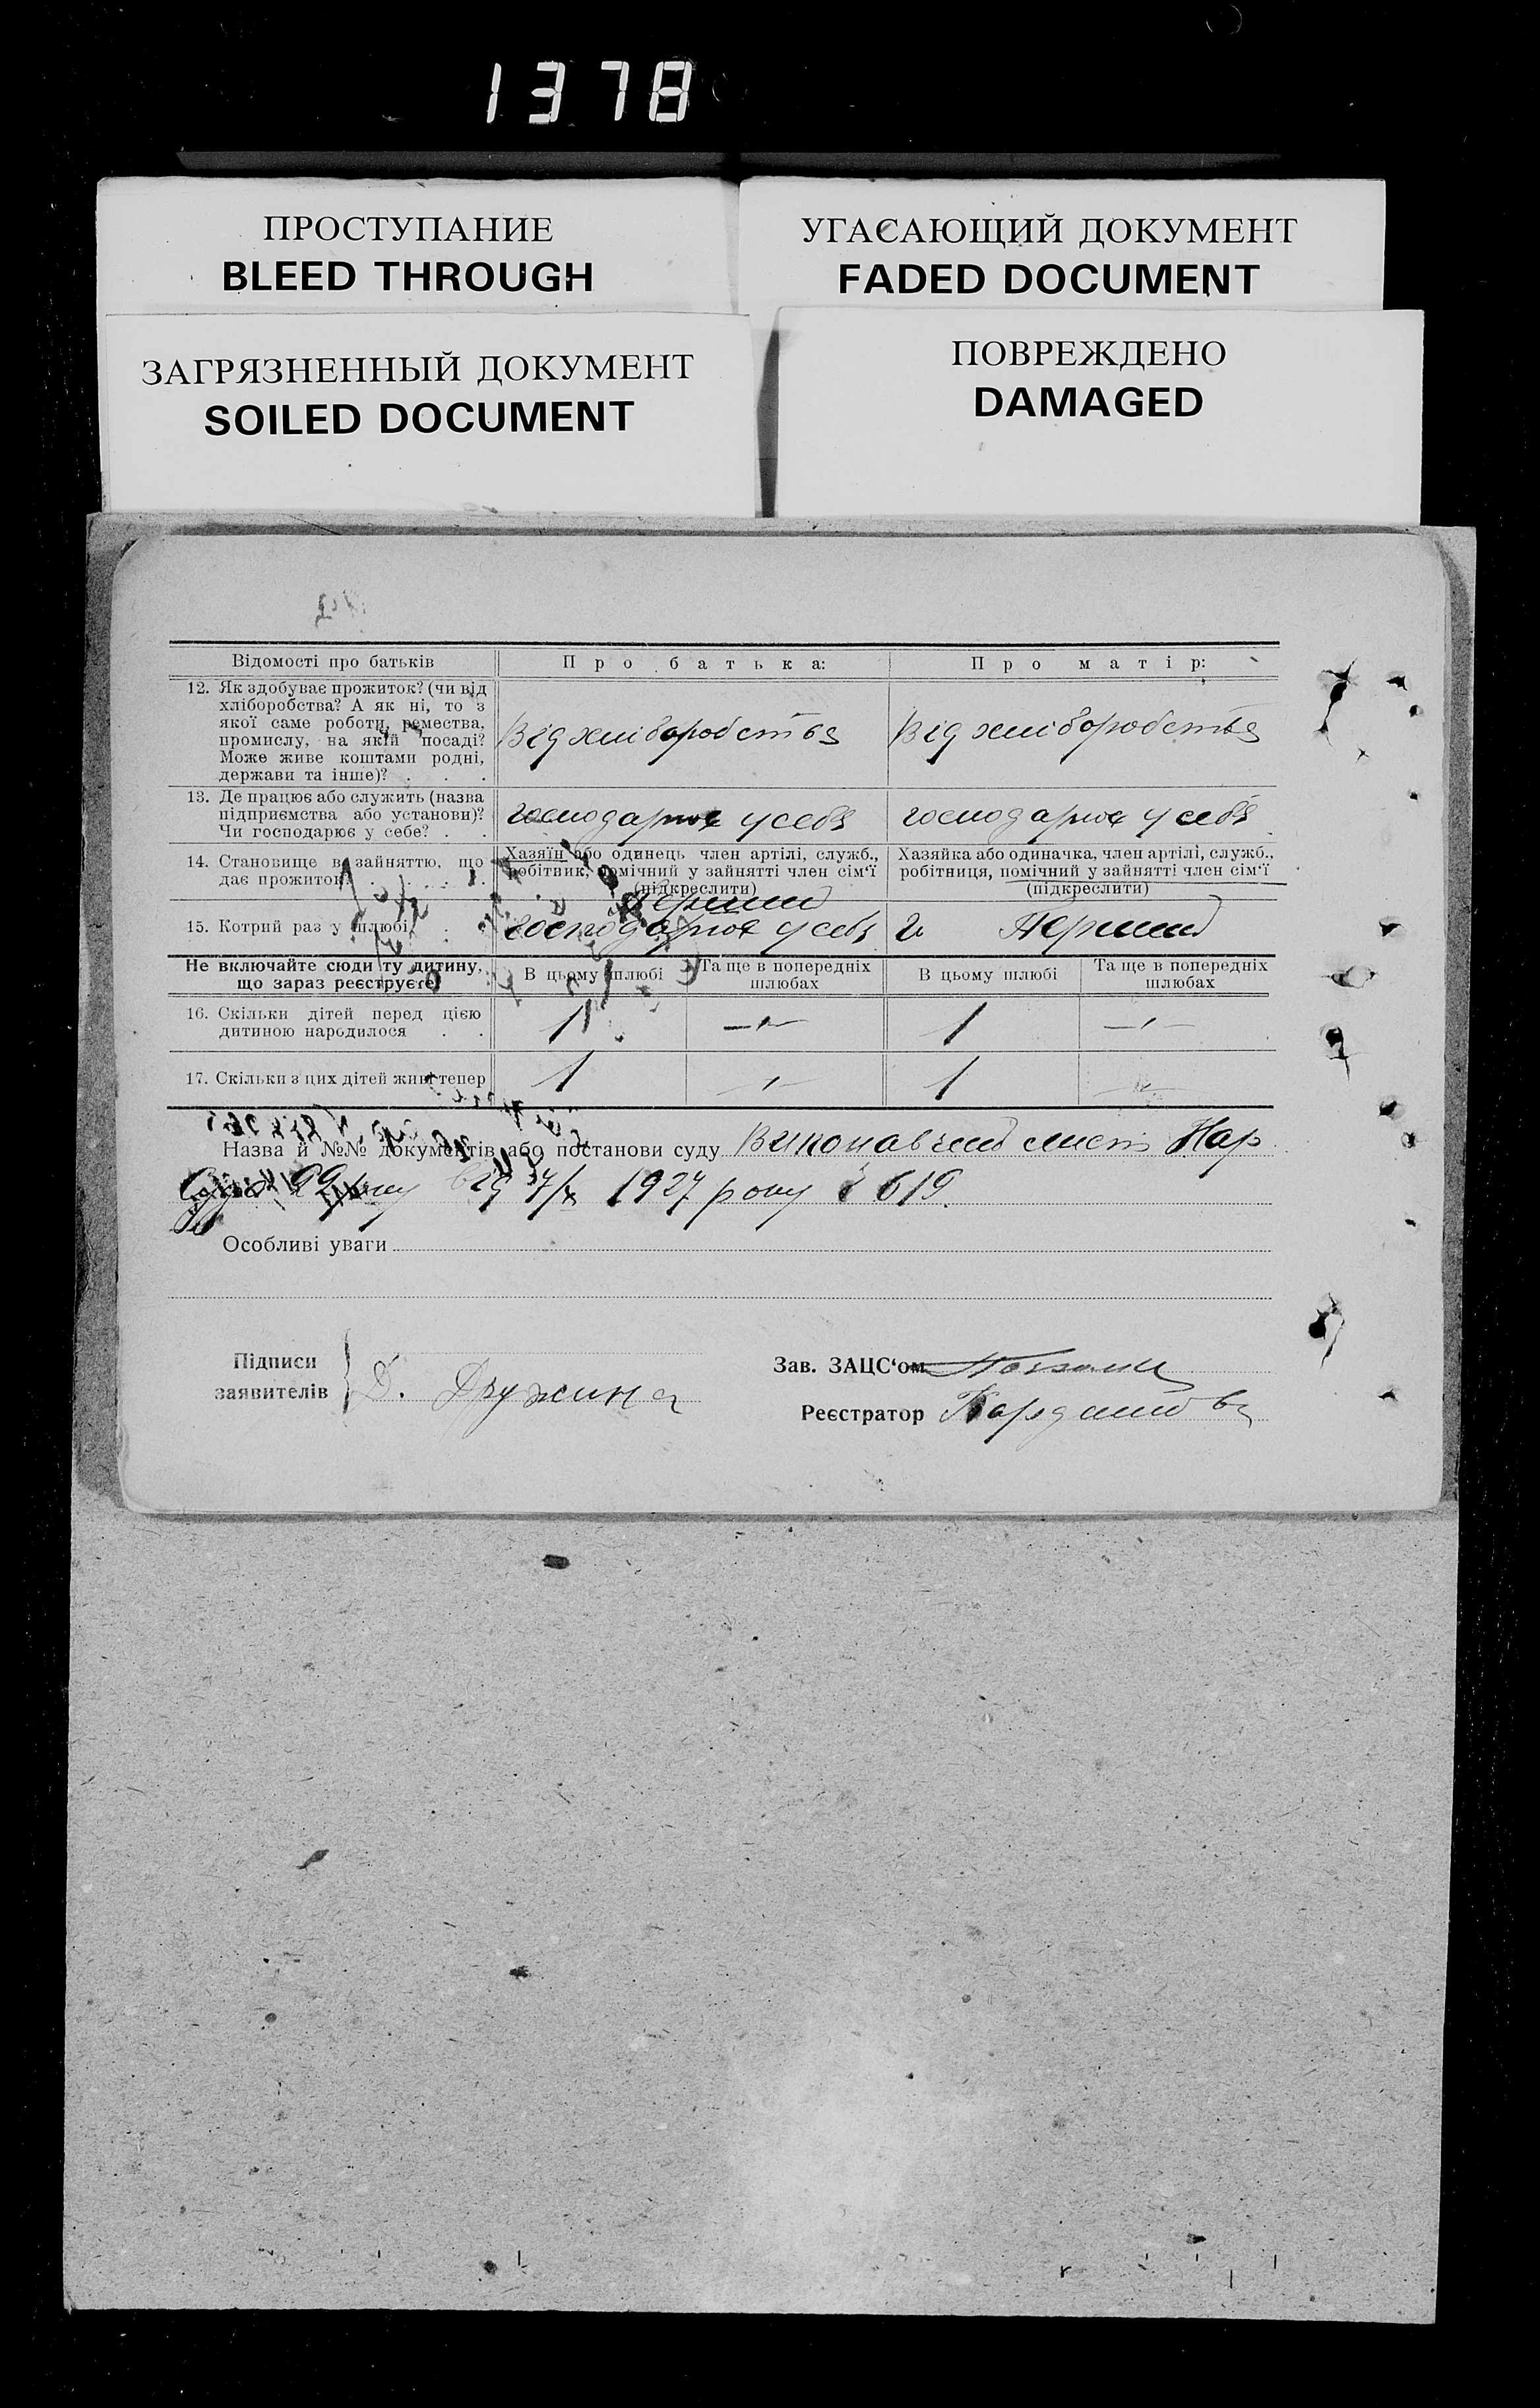 1378
ПРОСТУПАНИЕ
BLEED THROUGH
УГАСАЮЩИЙ ДОКУМЕНТ
FADED DOCUMENT
ЗАГРЯЗНЕННЫЙ ДОКУМЕНТ
SOILED DOCUMENT
ПОВРЕЖДЕНО
DAMAGED
Відомості про батьків
Про батька:
Про матір:
12. Як здобуває прожиток? (чи від
хліборобства? А як ні, то з
якої саме роботи, ремества,
промислу, на якій посаді?
Може живе коштами родні,
держави та інше)? . . .
Від хліборобства
Від хліборобства
13. Де працює або служить (назва
підприємства або установи)?
Чи господарює у себе? . .
господарює у себя
господарює у себя
14. Становище в зайняттю, що
дає прожиток
Хазяїн або одинець член артілі, служб.,
робітник, помічний у зайнятті член сім'ї
(підкреслити)
Хазяйка або одиначка, член артілі, служб.,
робітниця, помічний у зайнятті член сім'ї
(підкреслити)
15. Котрий раз у шлюбі
Перший
господарює у себя
Перший
Не включайте сюди ту дитину,
що зараз реєструєте
В цьому шлюбі
Та ще в попередніх
шлюбах
В цьому шлюбі
Та ще в попередніх
шлюбах
16. Скільки дітей перед цією
дитиною народилося . .
1
1
17. Скільки з цих дітей живі тепер
1
1
Назва й №№ документів або постанови суду Виконавчий лист Нар
1927 року 619.
Особливі уваги
Підписи
заявителів
Д. Дружина
Зав. ЗАЦС'ом
Реєстратор